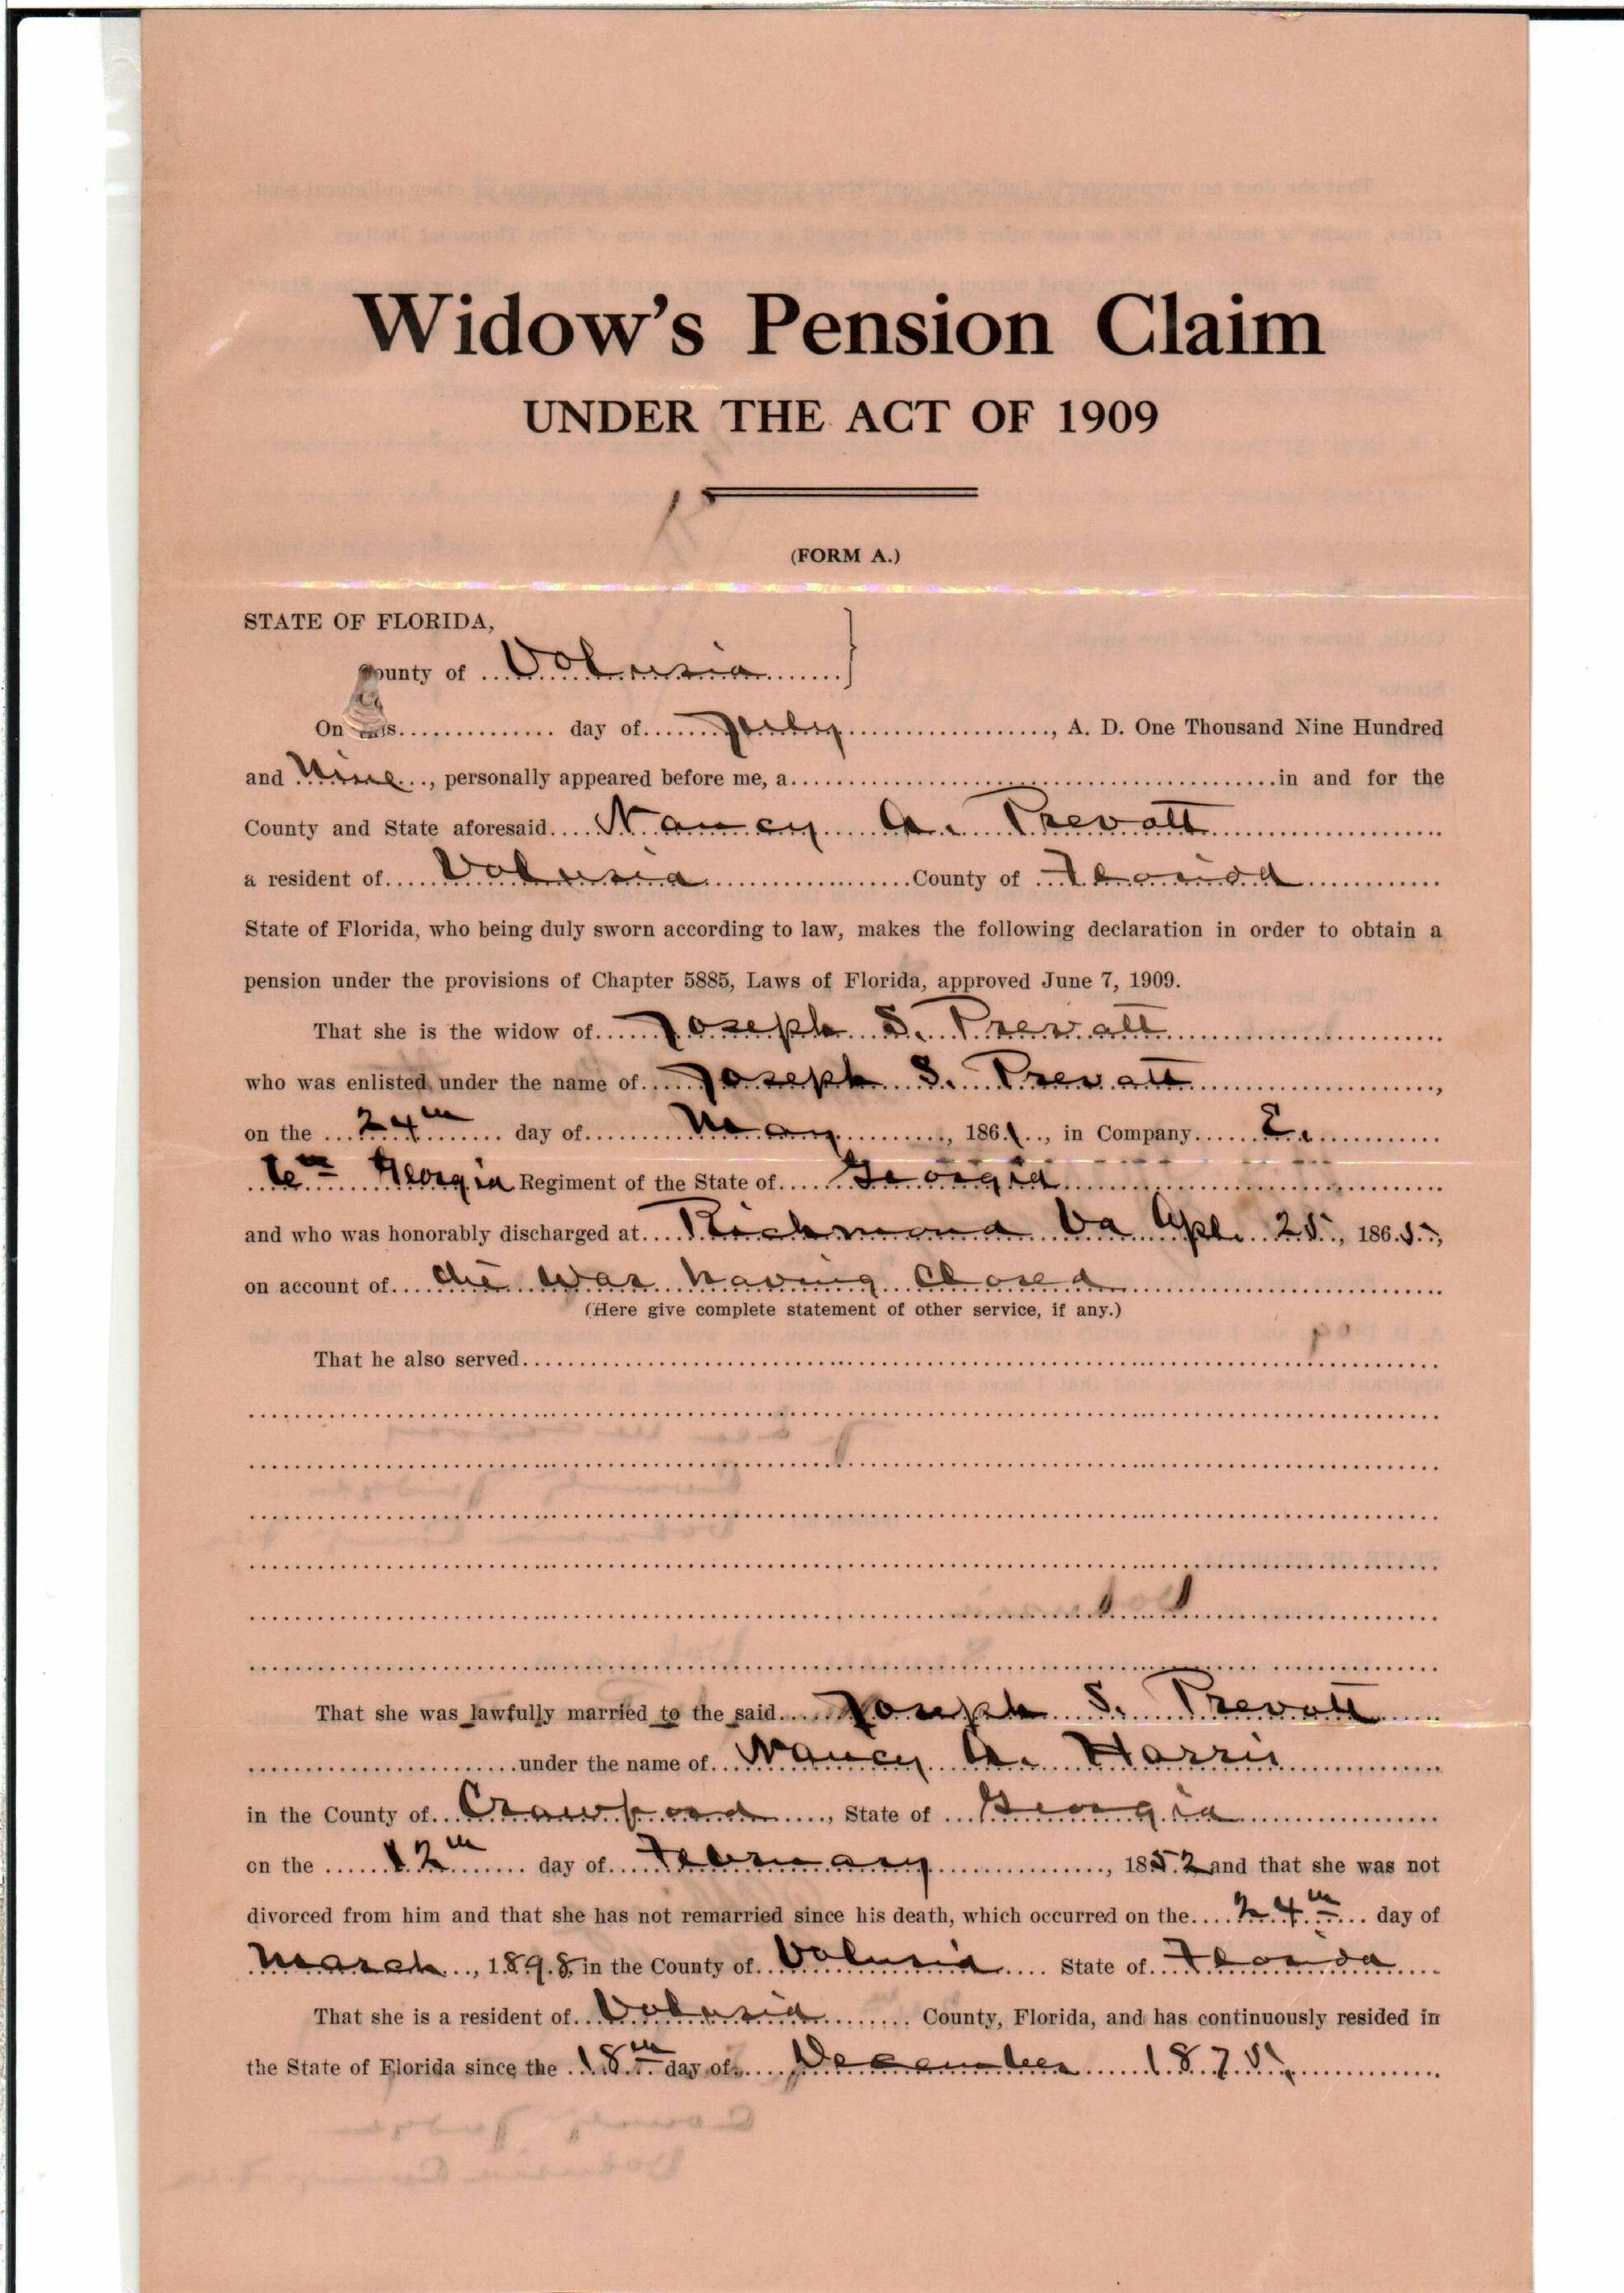 Widow's Pension Claim
UNDER THE ACT OF 1909
(FORM A.)
STATE OF FLORIDA,
County of Volusia
On this day of July, A. D. One Thousand Nine Hundred
and Nine, personally appeared before me, a in and for the
County and State aforesaid Nancy A. Prevatt
a resident of Volusia County of Florida
State of Florida, who being duly sworn according to law, makes the following declaration in order to obtain a
pension under the provisions of Chapter 5885, Laws of Florida, approved June 7, 1909.
That she is the widow of Joseph S. Prevatt
who was enlisted under the name of Joseph S. Prevatt,
on the 24th day of May, 1861, in Company E.
6th Georgia Regiment of the State of Georgia
and who was honorably discharged at Richmond Va Apl. 25, 1865,
on account of the War having Closed
(Here give complete statement of other service, if any.)
That he also served
That she was lawfully married to the said Joseph S. Prevatt
under the name of Nancy A. Harris
in the County of Crawford, State of Georgia
on the 12th day of February, 1852 and that she was not
divorced from him and that she has not remarried since his death, which occurred on the 24th day of
March, 1898, in the County of Volusia State of Florida
That she is a resident of Volusia County, Florida, and has continuously resided in
the State of Florida since the 18th day of December 1875.